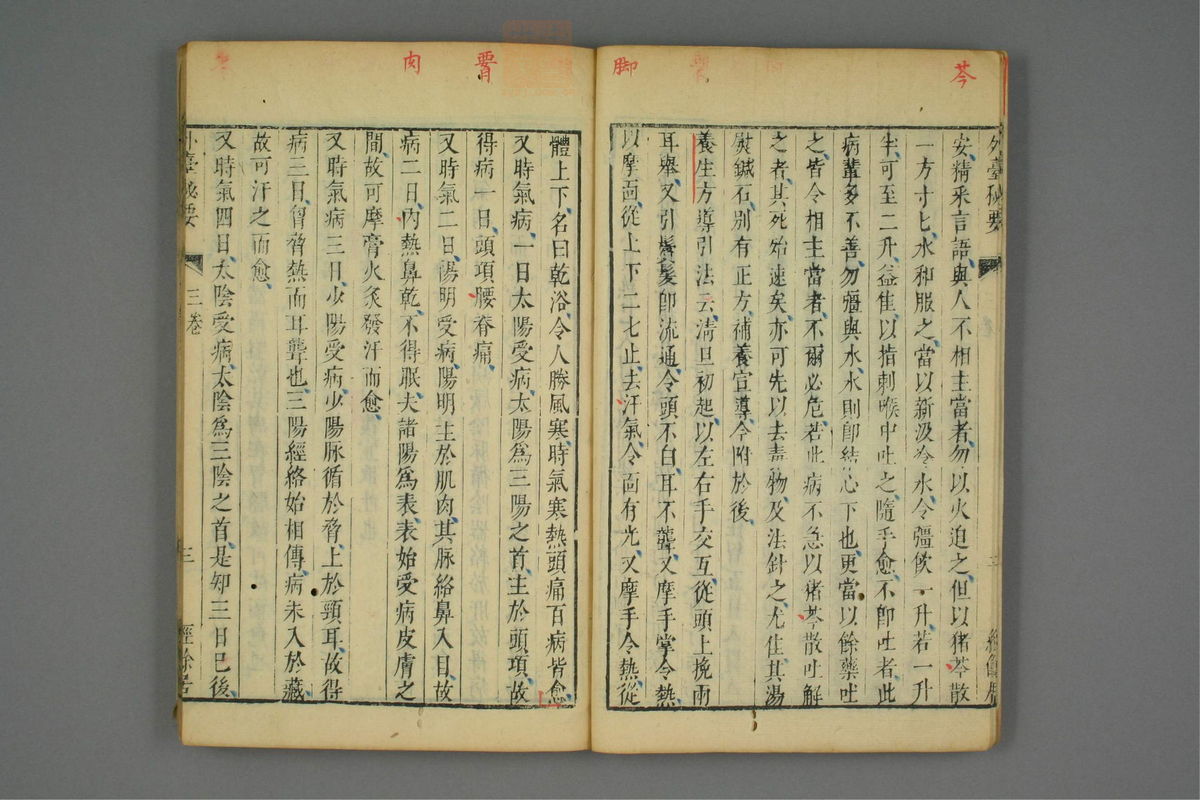 芩
脚
外臺秘要
安精采言語與人不相主當者勿以火迫之但以猪苓散
一方寸匕水和服之當以新汲冷水令彊飲一升若一升
半可至二升益佳以指刺喉中吐之隨手愈不即吐者此
病輩多不善勿彊與水水則即結心下也更當以餘藥吐
之皆令相主當者不爾必危若此病不急以猪苓散吐解
之者其死始速矣亦可先以去毒物及法針之尤佳其湯
熨鍼石別有正方補養宣導今附於後
養生方導引法云清旦初起以左右手交互從頭上挽兩
耳舉又引鬢髮即流通令頭不白耳不聾又摩手掌令熱
以摩面從上下二七止去汗氣令面有光又摩手令熱從
胷
肉
體上下名曰乾浴令人勝風寒時氣寒熱頭痛百病皆愈
又時氣病一日太陽受病太陽爲三陽之首主於頭項故
得病一日頭項腰脊痛
又時氣二日陽明受病陽明主於肌肉其脉絡鼻入目故
病二日内熱鼻乾不得眠夫諸陽爲表表始受病皮膚之
間故可摩膏火灸發汗而愈
又時氣病三日少陽受病少陽脉循於脅上於頸耳故得
病三日胷脅熱而耳聾也三陽經絡始相傳病未入於藏
故可汗之而愈
又時氣四日太陰受病太陰爲三陰之首是知三日已後
外臺秘要
三卷
三
經餘居